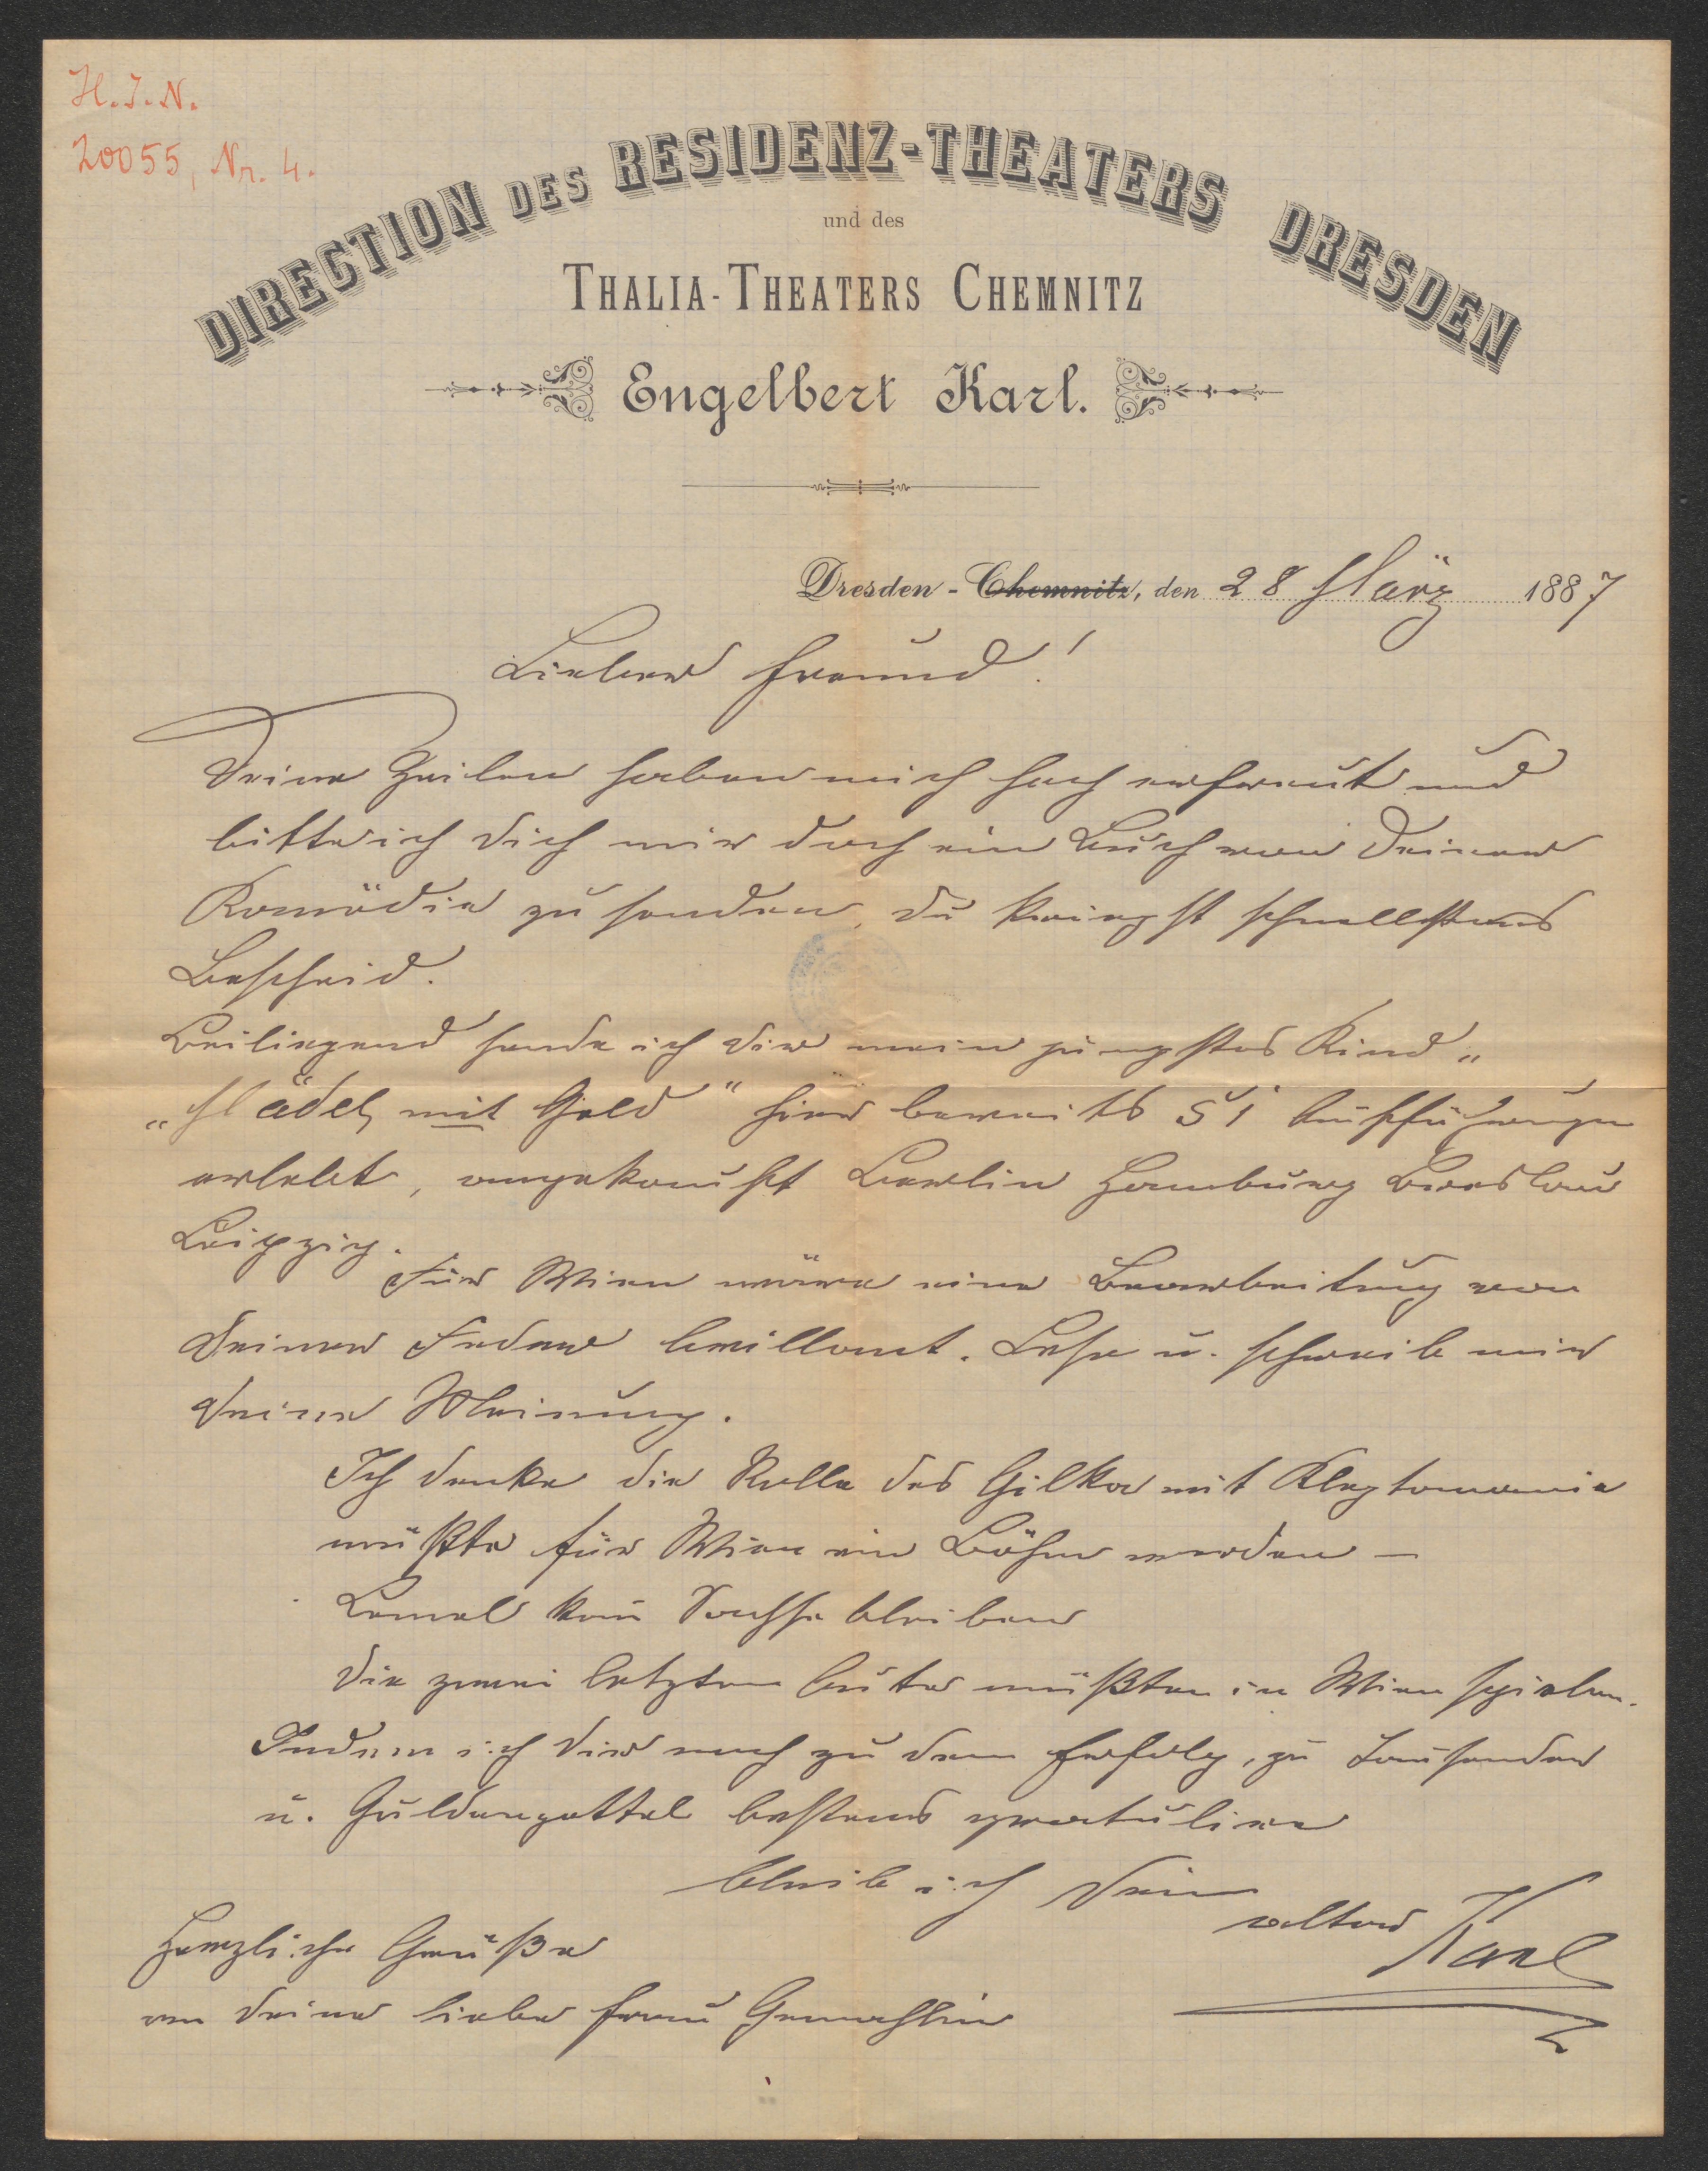 H.I.N.
20055, Nr. 4.
DIRECTION DES RESIDENZ-THEATERS DRESDEN
und des
THALIA-THEATERS CHEMNITZ
Engelbert Karl.
Dresden-Chemnitz, den 28 März 1887
Lieber Freund!
Deine Zeilen haben mich hoch erfreut und
bitte ich Dich mir doch ein Buch von Deiner
Komödie zu senden, du kriegst schnellstens
Bescheid.
Beiliegend sende ich Dir mein jüngstes Kind „
„Mädel mit Geld" hier bereits 51 Aufführungen
erlebt, angekauft Berlin Hamburg Breslau
Leipzig.
Für Wien wäre eine Bearbeitung von
Deiner Feder brillant. Lese u. schreib mir
Deine Meinung.
Ich denke die Rolle des Gilka mit Kleptomanie
müßte für Wien ein Böhm werden —
kein Sachse bleiben
Die zwei letzten Akte müßten in Wien spielen.
Indem ich Dir noch zu dem Erfolg, zu Tausender
u. Guldenzettel bestens gratulire
bleib ich Dein
alter Karl
Herzliche Grüße
an Deine liebe Frau Gemahlin